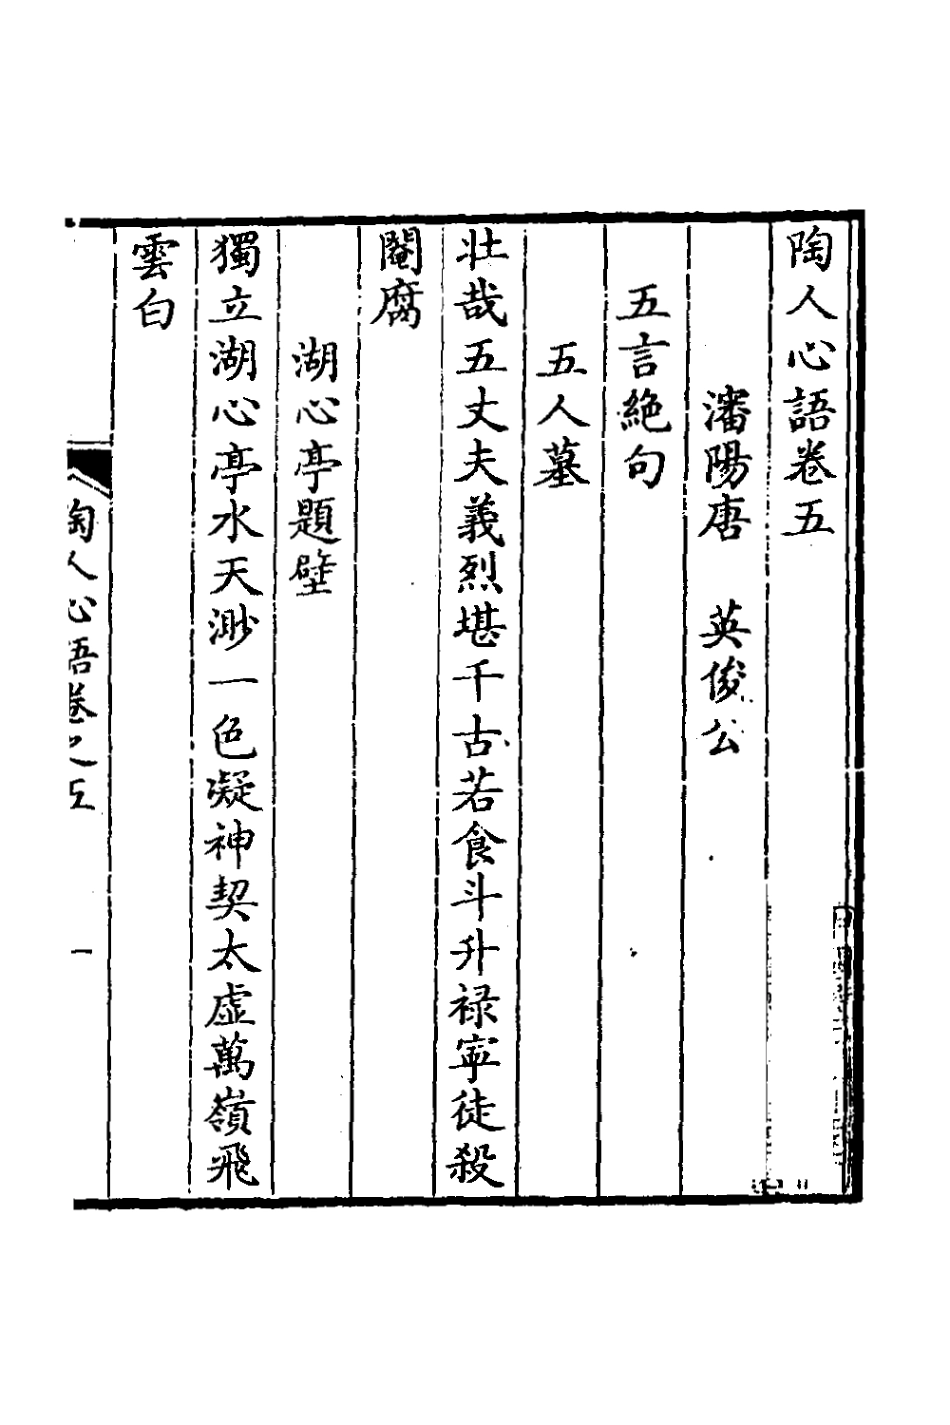 陶人心語卷五
瀋陽唐　英俊公
五言絕句
五人墓
壯哉五丈夫義烈堪千古若食斗升祿寧徒殺
閹腐
湖心亭題壁
獨立湖心亭水天渺一色凝神契太虛萬嶺飛
雲白
陶人心語卷之五
一